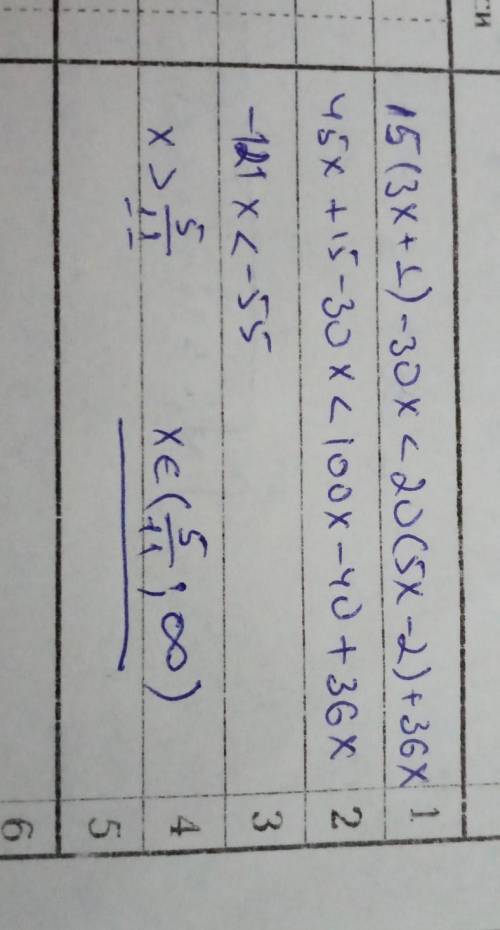 15(3x+1)-30x<20(5x-2)+36x 1
45x+15-30x<100x-40+36x 2
-121x<-55 3
x>5/11 x∈(5/11;∞) 4
5
6